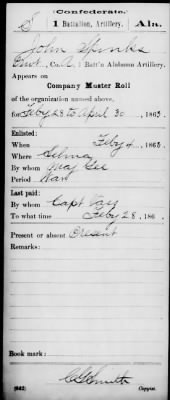 (Confederate.)
S 1 Battalion, Artillery. Ala.
John Spinks
Pvt, Co. A, 1 Batt'n Alabama Artillery.
Appears on
Company Muster Roll
of the organization named above,
for Feby 28 to April 30, 1863.
Enlisted:
When Feby 4, 1863.
Where Selma
By whom Maj Lee
Period War
Last paid:
By whom Capt
To what time Feby 28, 186 .
Present or absent Present
Remarks:
Book mark:
(642) Copyist.